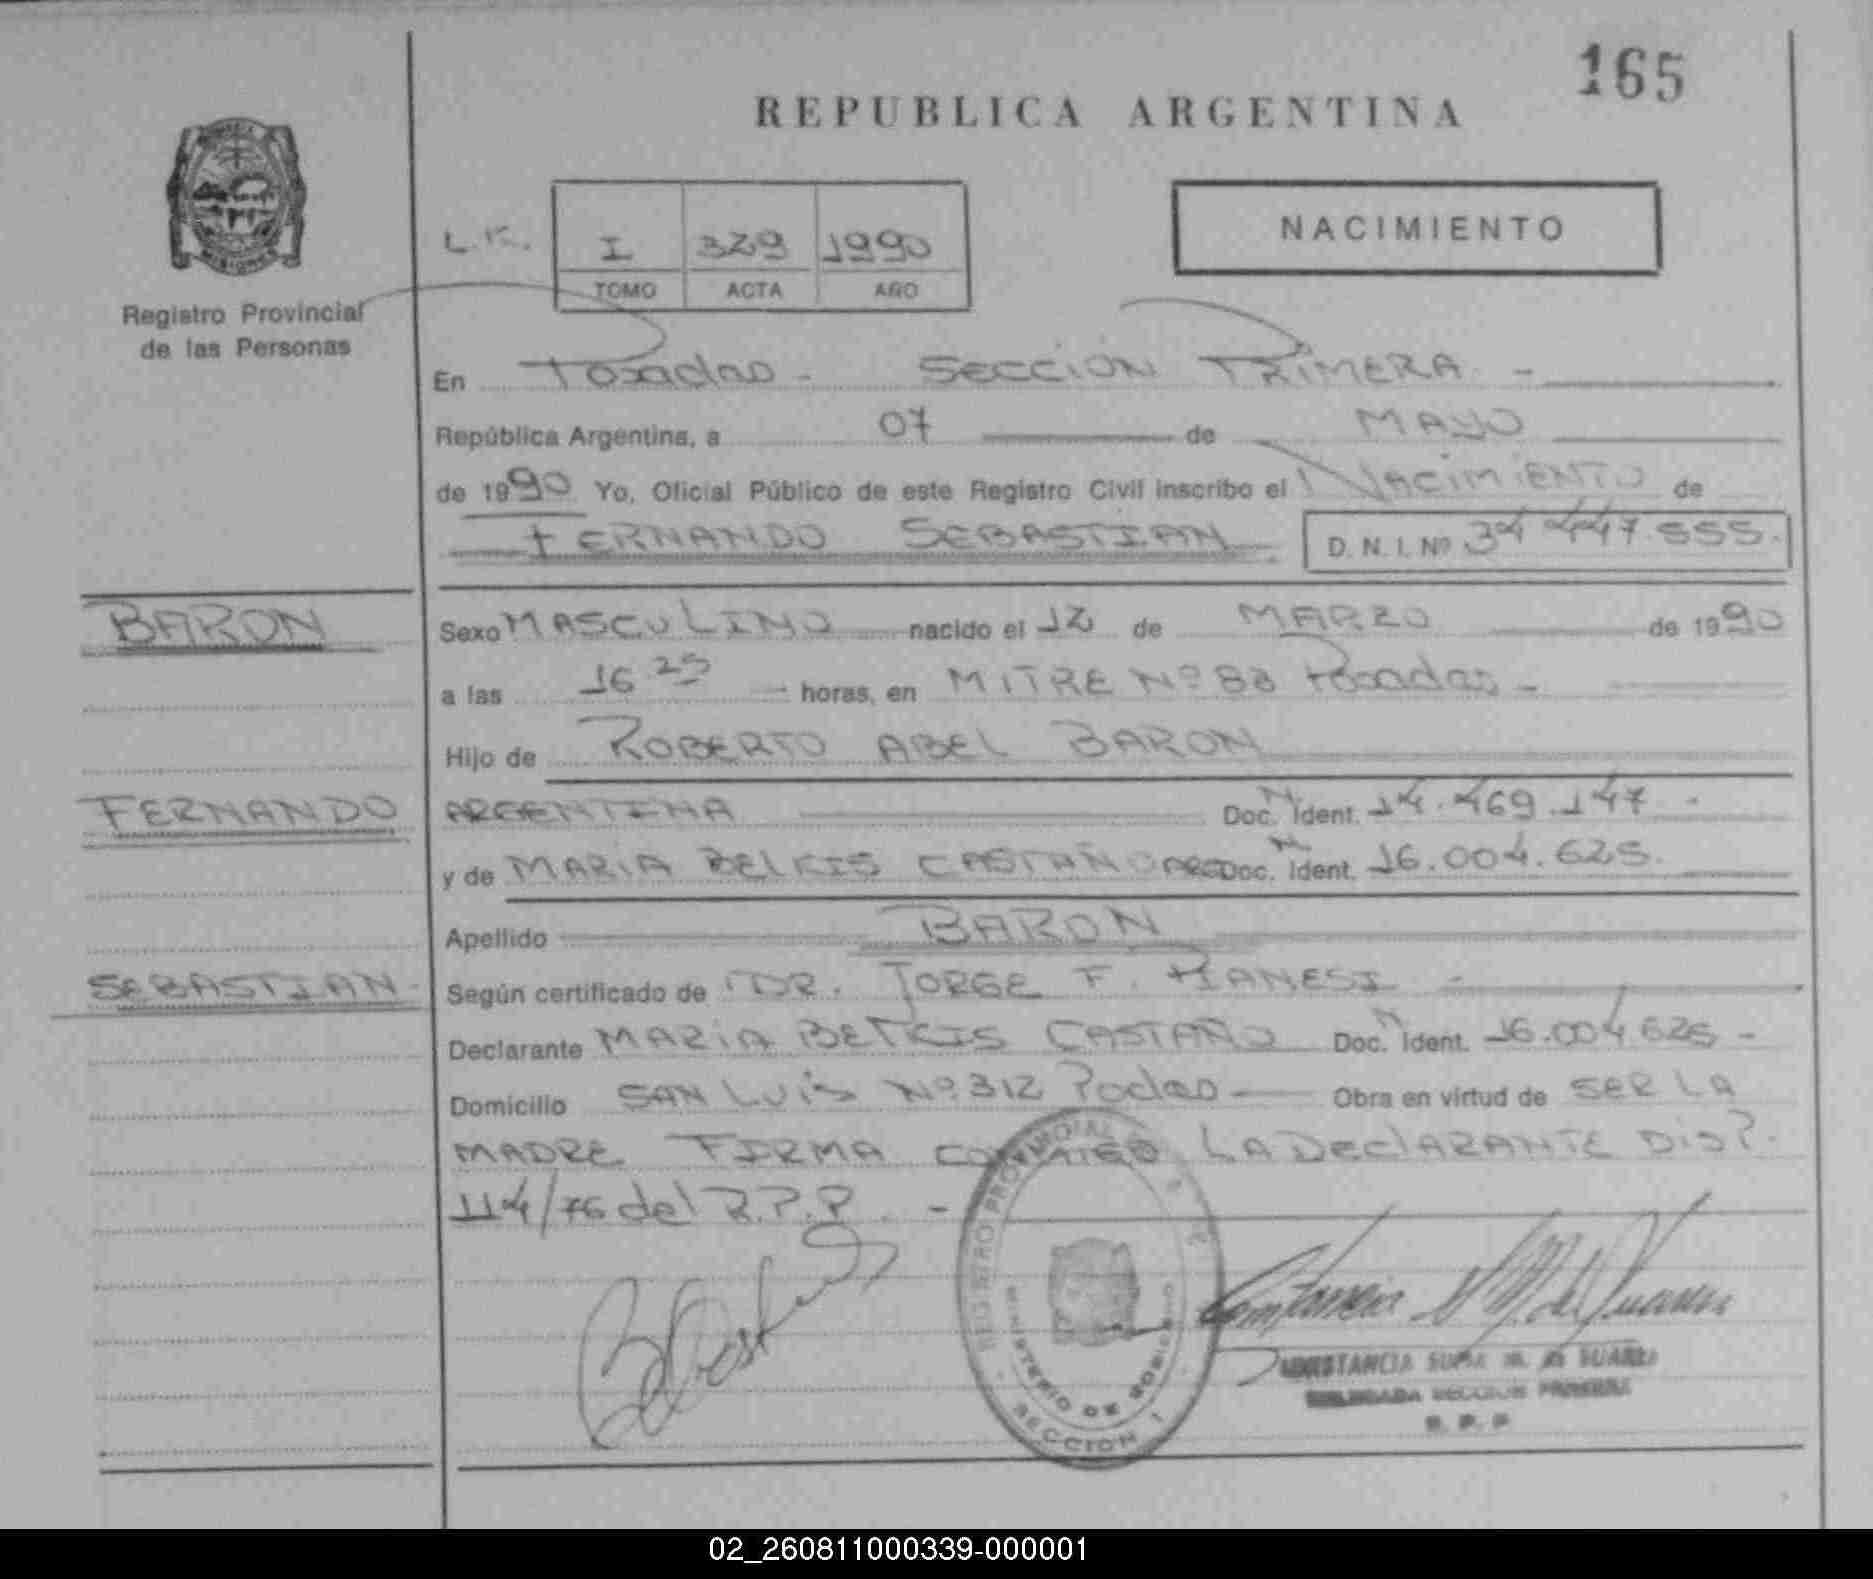 165
REPUBLICA ARGENTINA
MISIONES
Registro Provincial
de las Personas
NACIMIENTO
I 329 1990
TOMO ACTA AÑO
En Posadas - SECCION PRIMERA -
República Argentina, a 07 de MAYO
de 1990 Yo, Oficial Público de este Registro Civil inscribo el NACIMIENTO de
FERNANDO SEBASTIAN D. N. I. Nº 34 447.555.
BARON
Sexo MASCULINO nacido el 12 de MARZO de 1990
a las 16 25 horas, en MITRE Nº 83 Posadas -
Hijo de ROBERTO ABEL BARON
FERNANDO
ARGENTINA Doc. N Ident. 14.469.147 -
y de MARIA BELKIS CASTAÑO ARG Doc. N Ident. 16.004.625.
Apellido BARON
SEBASTIAN -
Según certificado de DR. JORGE F. PIANESI -
Declarante MARIA BELKIS CASTAÑO Doc. N Ident. 16.004.625 -
Domicilio SAN LUIS Nº 312 Podas Obra en virtud de SER LA
MADRE FIRMA CONMIGO LA DECLARANTE DISP.
114/76 del R.P.P. -
REGISTRO PROVINCIAL
MINISTERIO DE GOBIERNO
SECCION 1
CONSTANCIA M. de SUAREZ
DELEGADA SECCION PRIMERA
R. P. P
02_260811000339-000001